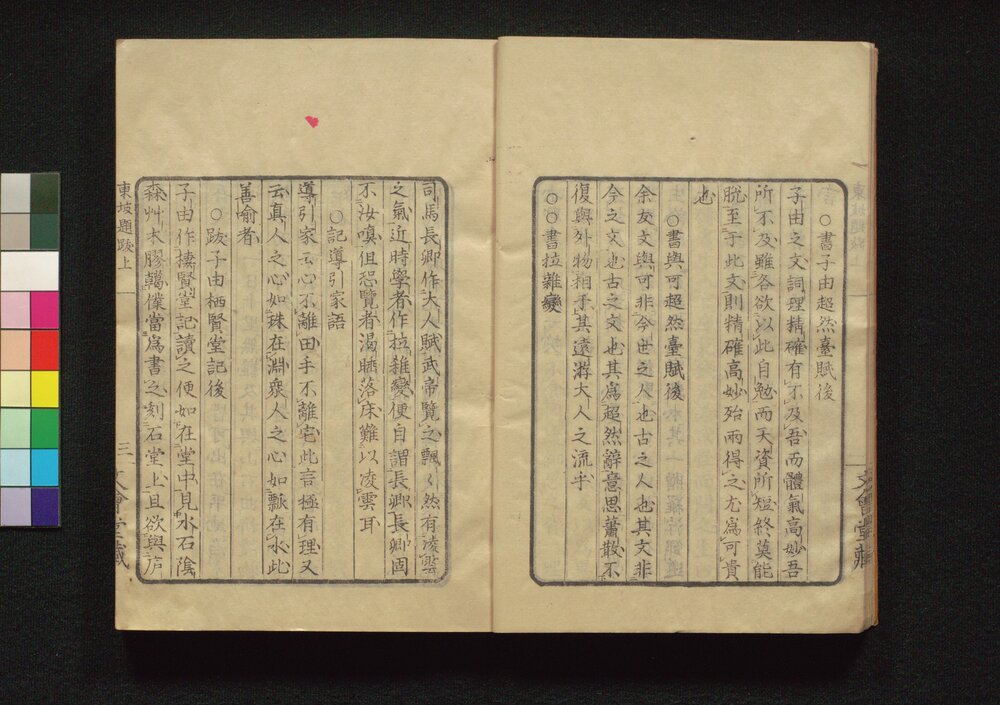 ○書子由超然臺賦後
子由之文詞理精確有不及吾而體氣高妙吾
所不及雖各欲以此自勉而天資所短終莫能
脫至于此文則精確高妙殆兩得之尤爲可貴
也
○書與可超然臺賦後
余友文與可非今世之人也古之人也其文非
今之文也古之文也其爲超然辭意思蕭散不
復與外物相予其遠游大人之流乎
○○書拉雜變
司馬長卿作大人賦武帝覽之飄〱然有凌雲
之氣近時學者作拉雜變便自謂長卿長卿固
不汝嗔但恐覽者渴睡落床難以凌雲耳
○記導引家語
導引家云心不離田手不離宅此言極有理又
云真人之心如珠在淵衆人之心如瓢在水此
善喻者
○跋子由栖賢堂記後
子由作棲賢堂記讀之便如在堂中見水石陰
森艸木膠轕僕當爲書之刻石堂上且欲與庐
東坡題跋上
三
文會堂藏